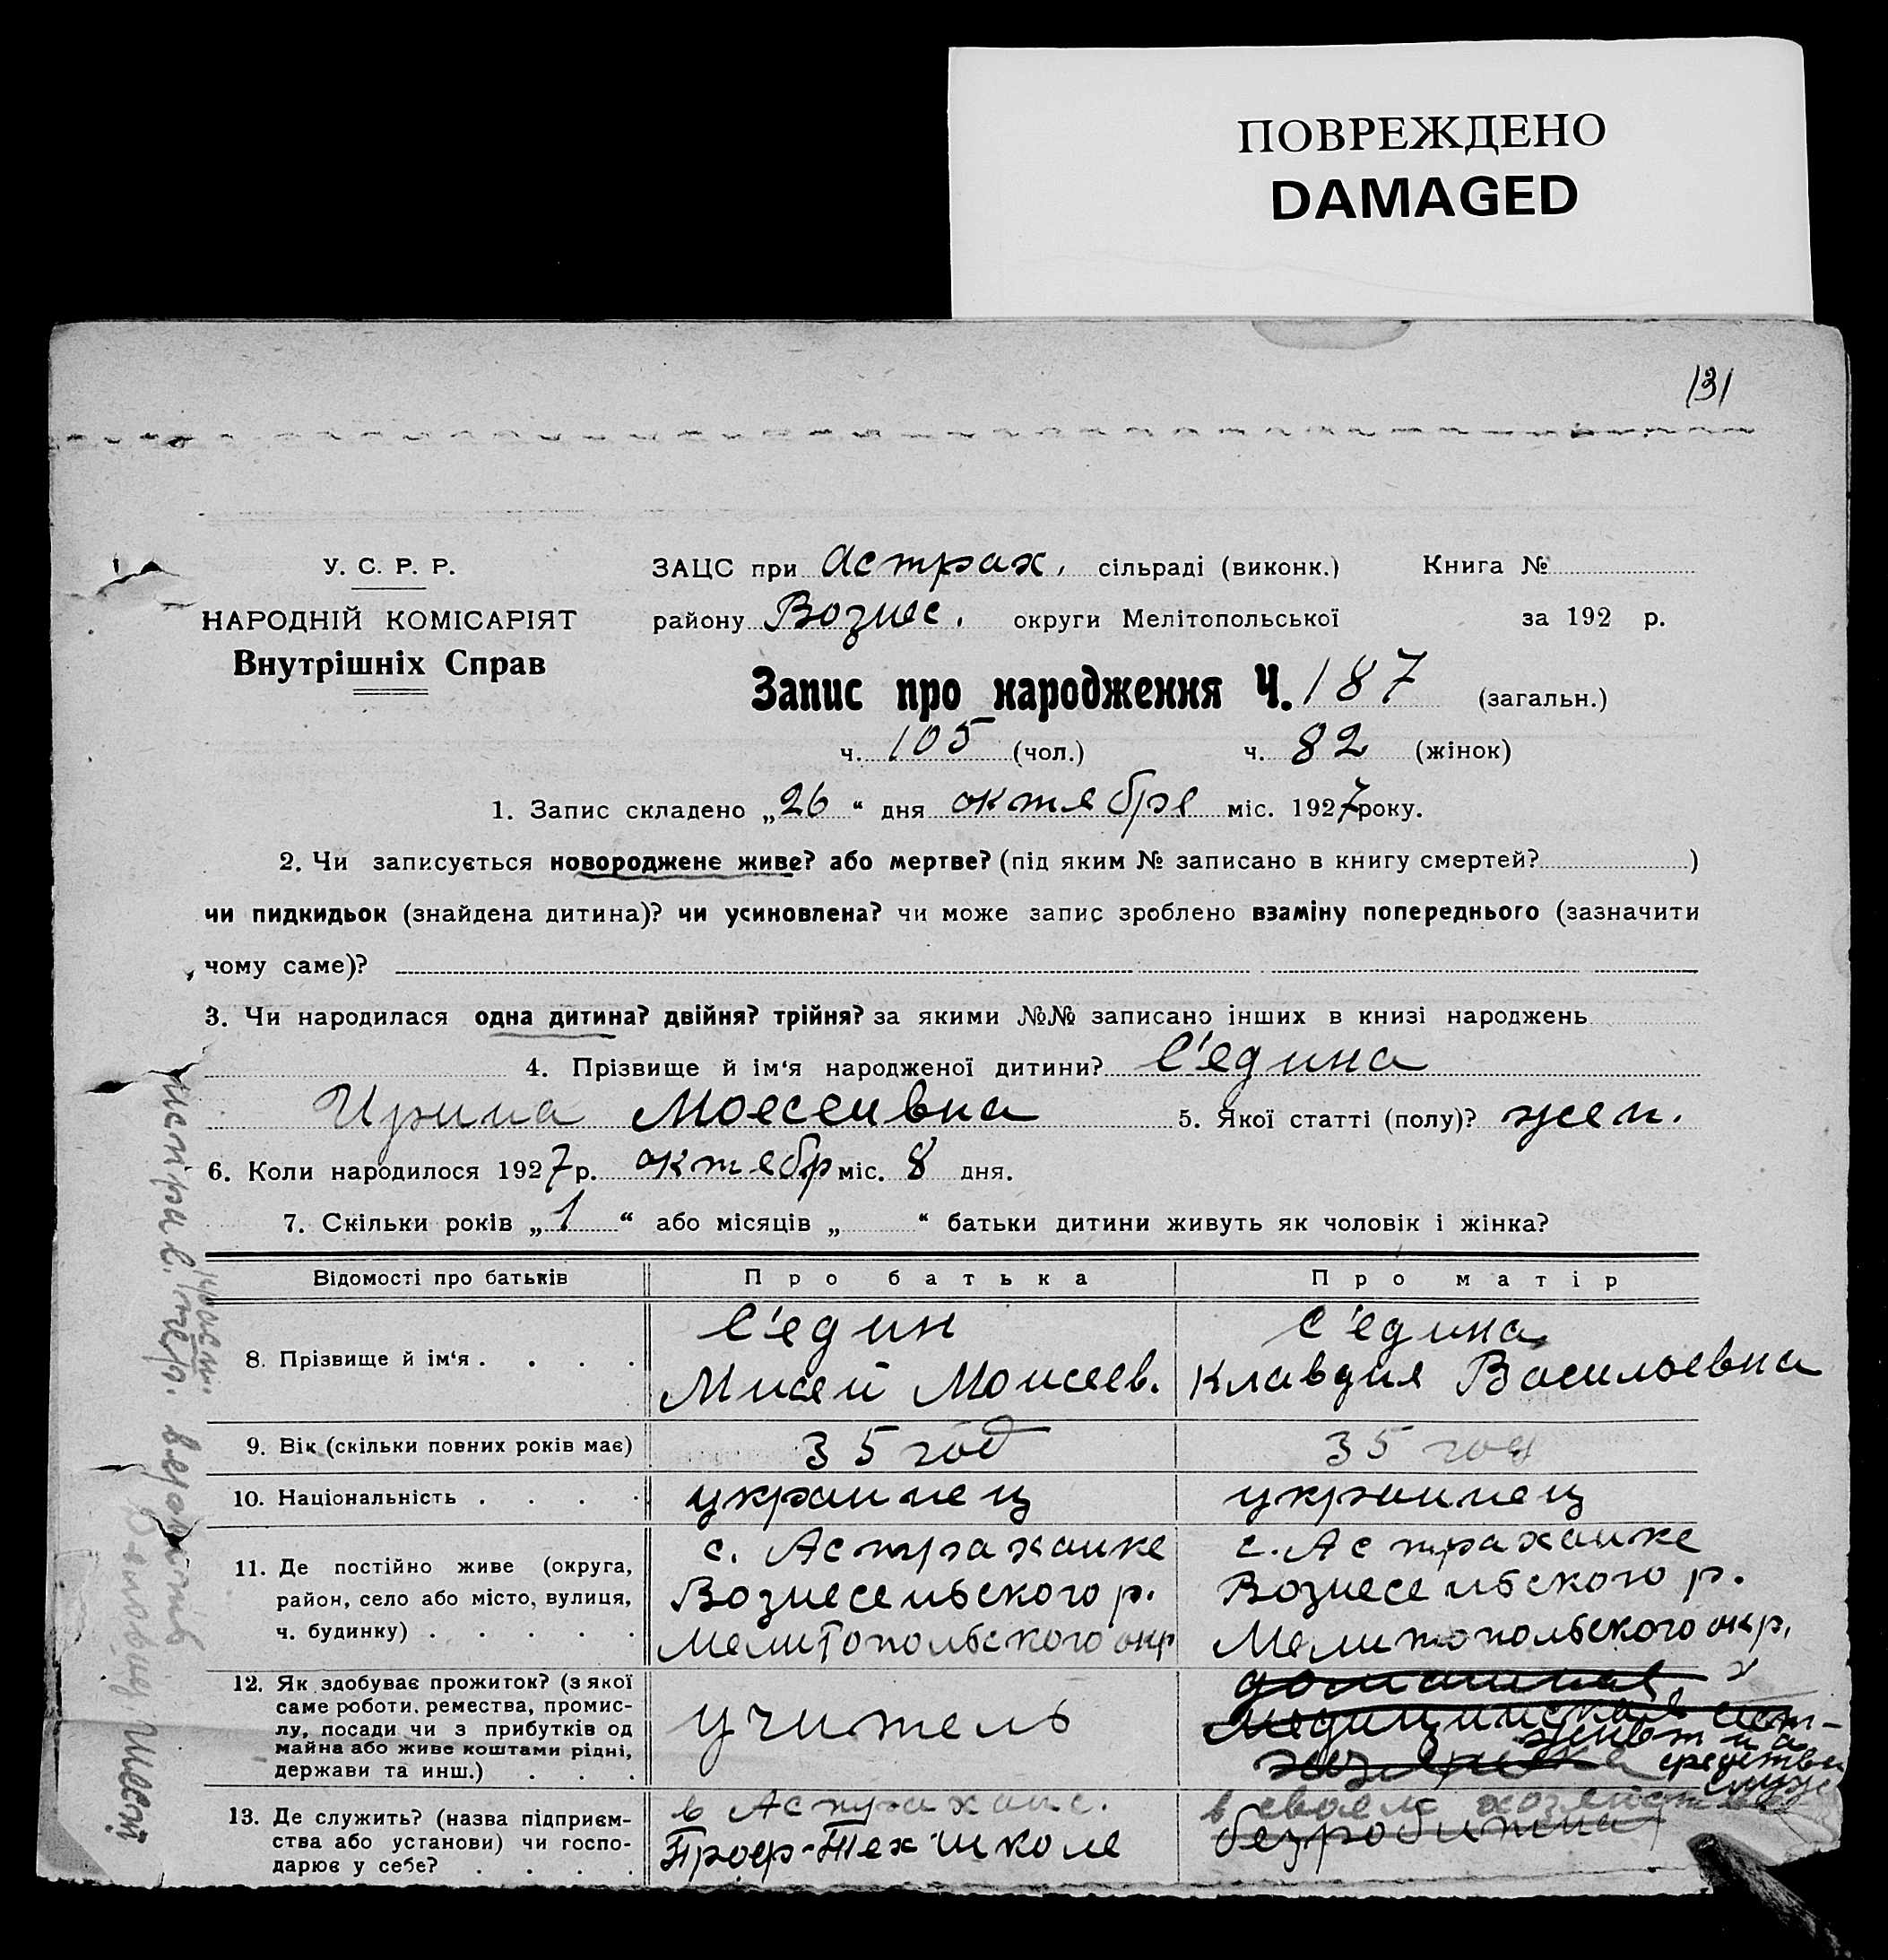 ПОВРЕЖДЕНО
DAMAGED
131
У. С. Р. Р.
НАРОДНІЙ КОМІСАРІЯТ
Внутрішніх Справ
ЗАЦС при Астрах. сільраді (виконк.) Книга №
району Вознес. округи Мелітопольської за 192 р.
Запис про народження Ч. 187 (загальн.)
ч. 105 (чол.) ч. 82 (жінок)
1. Запис складено „26“ дня октября міс. 1927 року.
2. Чи записується новороджене живе? або мертве? (під яким № записано в книгу смертей? )
чи пидкидьок (знайдена дитина)? чи усиновлена? чи може запис зроблено взаміну попереднього (зазначити
чому саме)?
3. Чи народилася одна дитина? двійня? трійня? за якими №№ записано інших в книзі народжень
4. Прізвище й ім‘я народженої дитини? С'едина
Ирина Моесеивна 5. Якої статті (полу)? жен.
6. Коли народилося 1927 р. октябр міс. 8 дня.
7. Скільки років „1“ або місяців „ “ батьки дитини живуть як чоловік і жінка?
Відомості про батьків Про батька Про матір
8. Прізвище й ім‘я . . . .
С'един
Мисей Моисеев.
С'едина
Клавдия Васильевна
9. Вік (скільки повних років має) 35 год 35 год
10. Національність . . . . украинец украинец
11. Де постійно живе (округа,
район, село або місто, вулиця,
ч. будинку) . . . . .
с. Астраханке
Вознесеньского р.
Мелитопольского окр
с. Астраханке
Вознесеньского р.
Мелитопольского окр.
12. Як здобуває прожиток? (з якої
саме роботи, ремества, промис-
лу, посади чи з прибутків од
майна або живе коштами рідні,
держави та инш.) . . .
учитель
домашняя
медицинская сест-
живет на
средства
13. Де служить? (назва підприєм-
ства або установи) чи госпо-
дарює у себе? . . . .
в Астраханс.
Проф-Тех школе
в своем хозяйстве
безробитна
исправ. верояттів